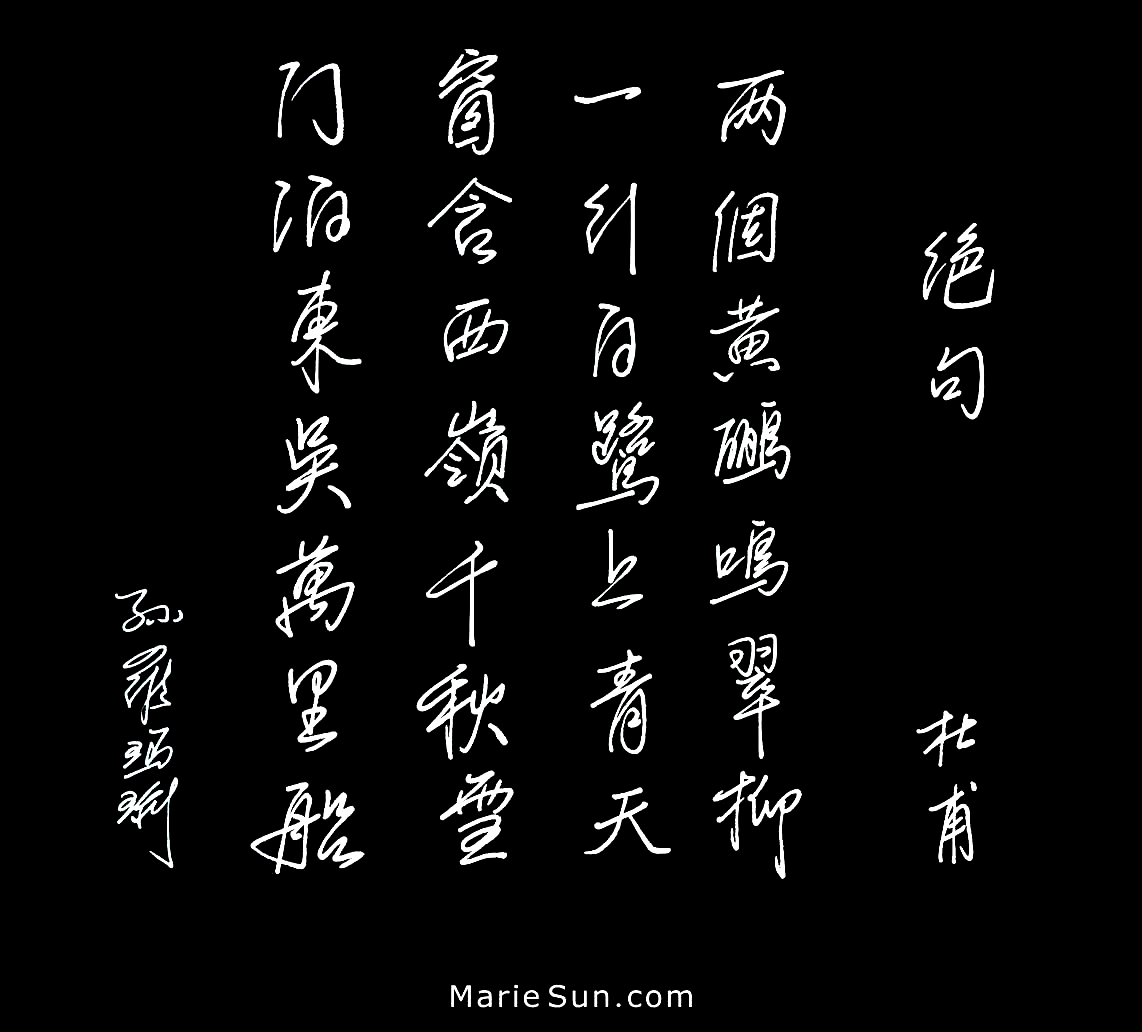 绝句 杜甫
两個黄鹂鳴翠柳
一行白鷺上青天
窗含西嶺千秋雪
门泊東吳萬里船
孫羅瑪琍
MarieSun.com